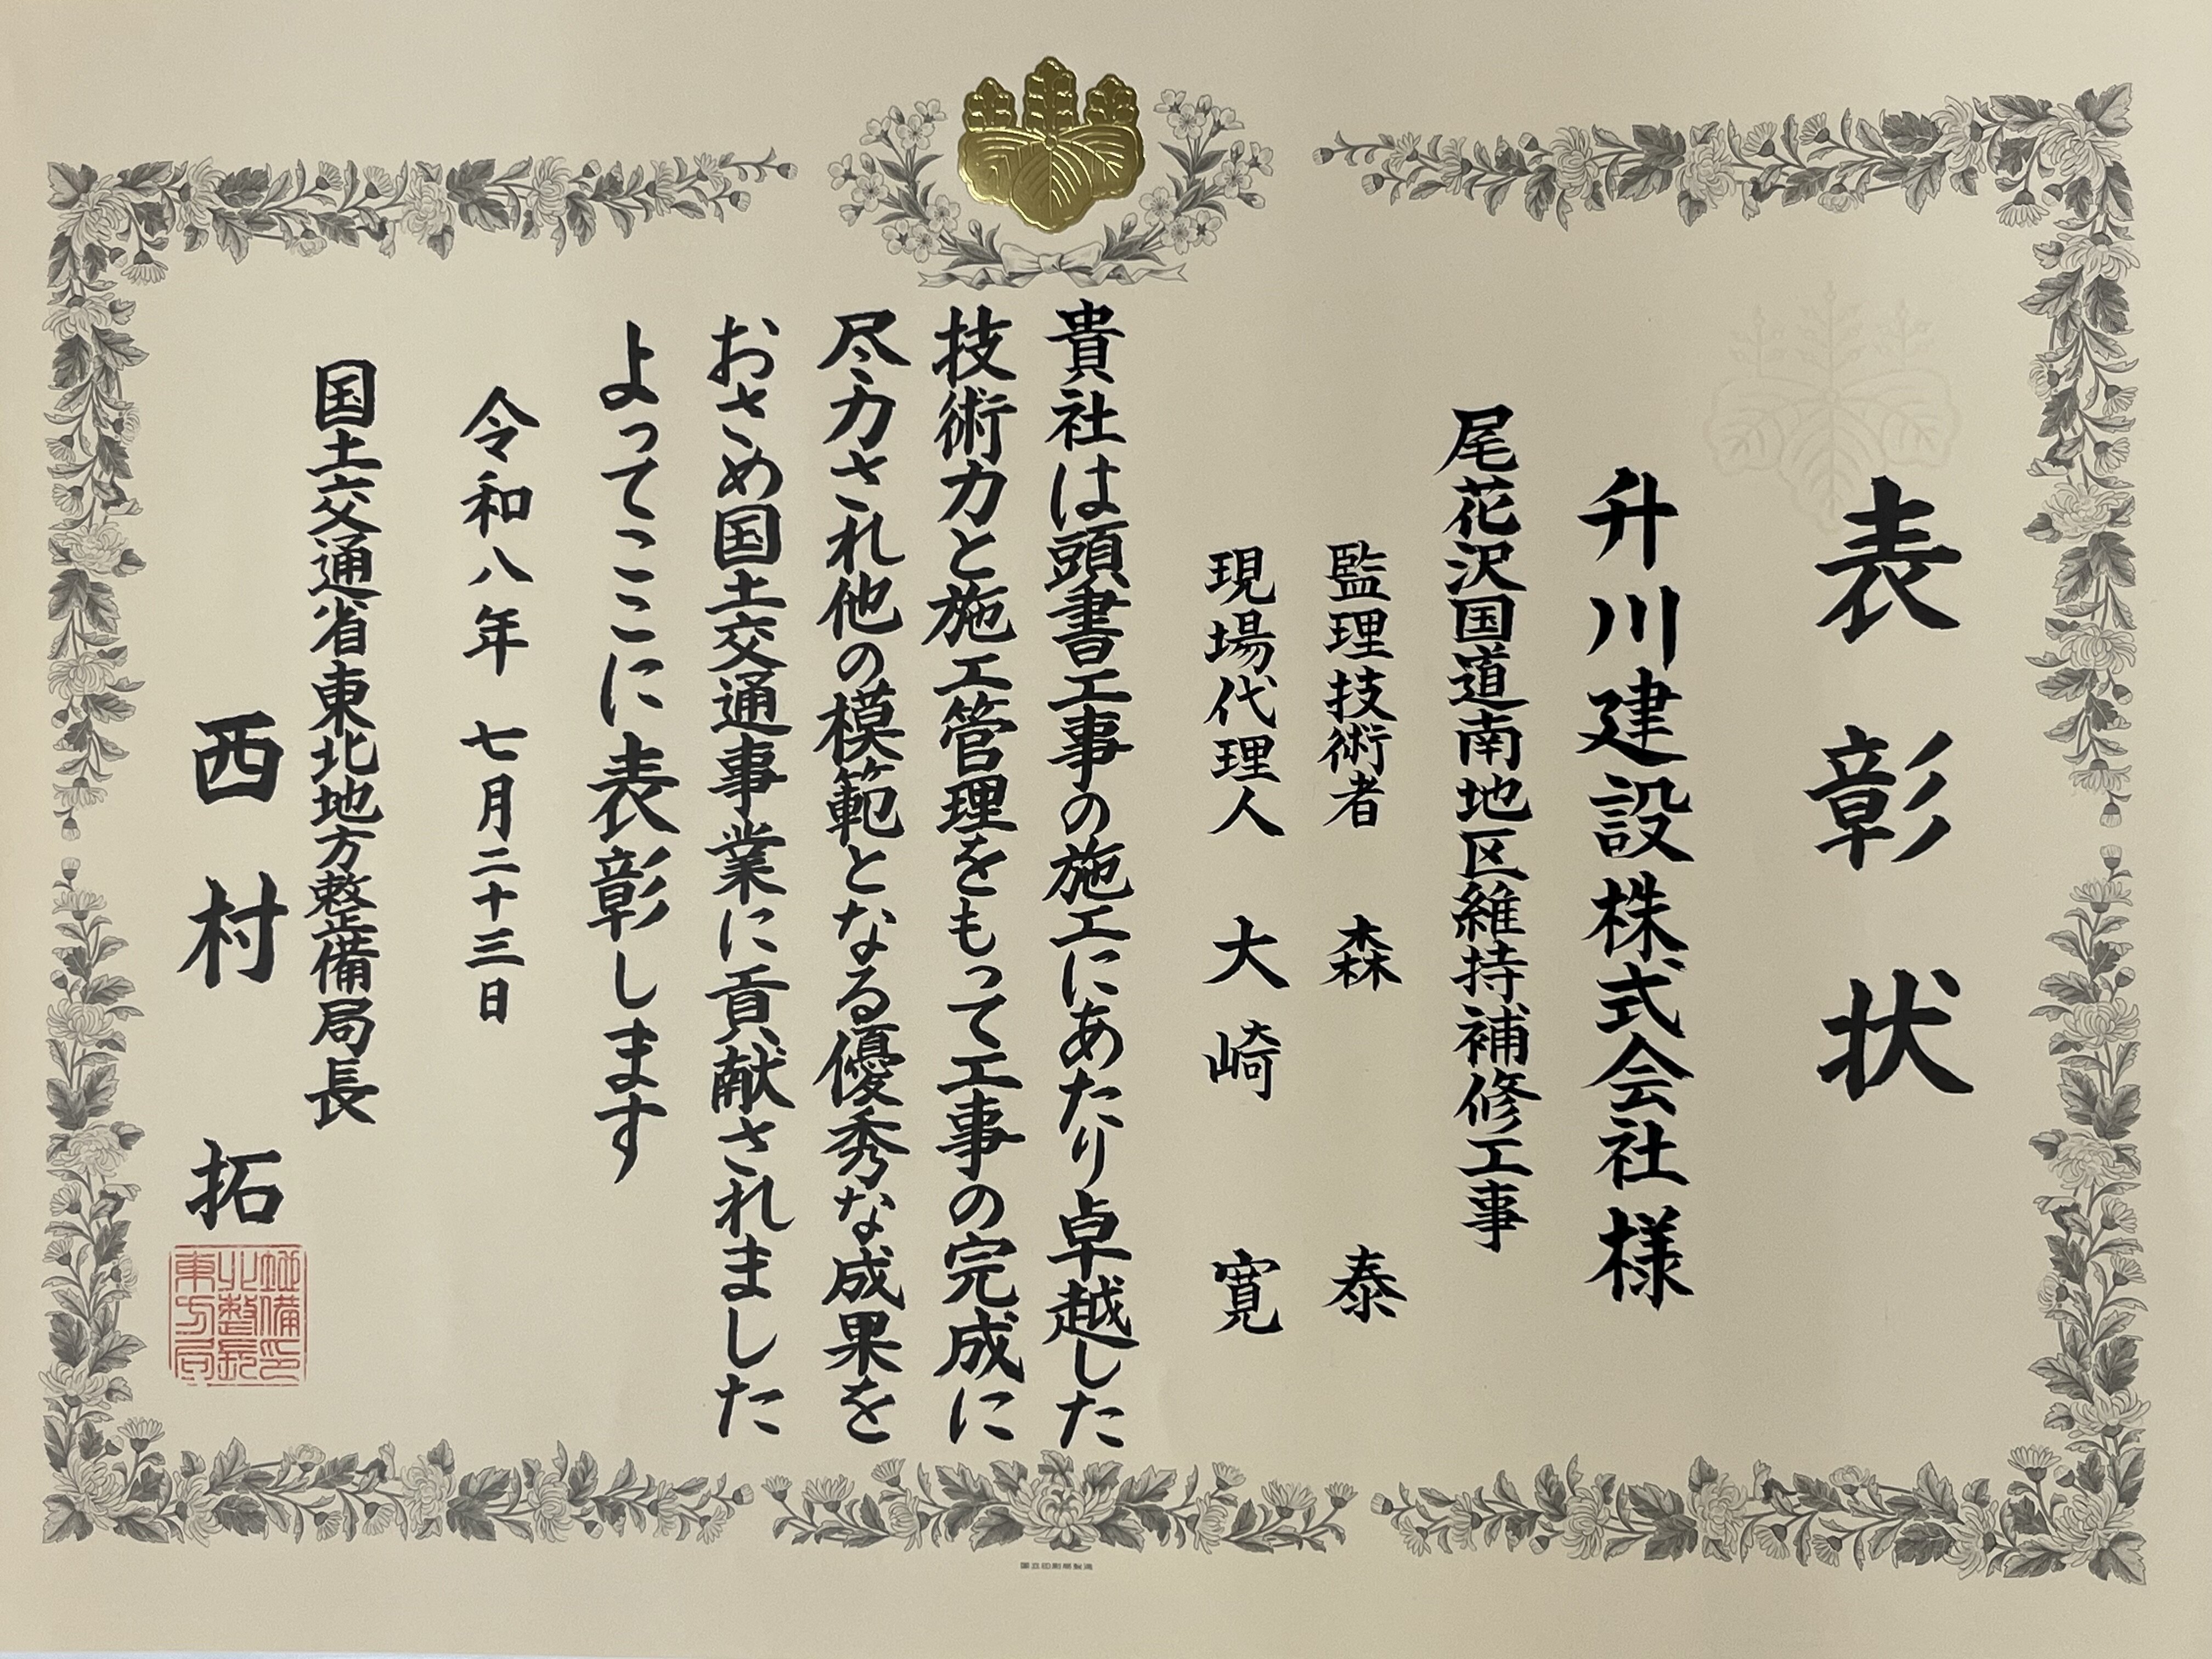 表彰状
升川建設株式会社様
尾花沢国道南地区維持補修工事
監理技術者 森 泰
現場代理人 大崎 寛
貴社は頭書工事の施工にあたり卓越した
技術力と施工管理をもって工事の完成に
尽力され他の模範となる優秀な成果を
おさめ国土交通事業に貢献されました
よってここに表彰します
令和八年 七月二十三日
国土交通省東北地方整備局長
西村 拓
国立印刷局製造